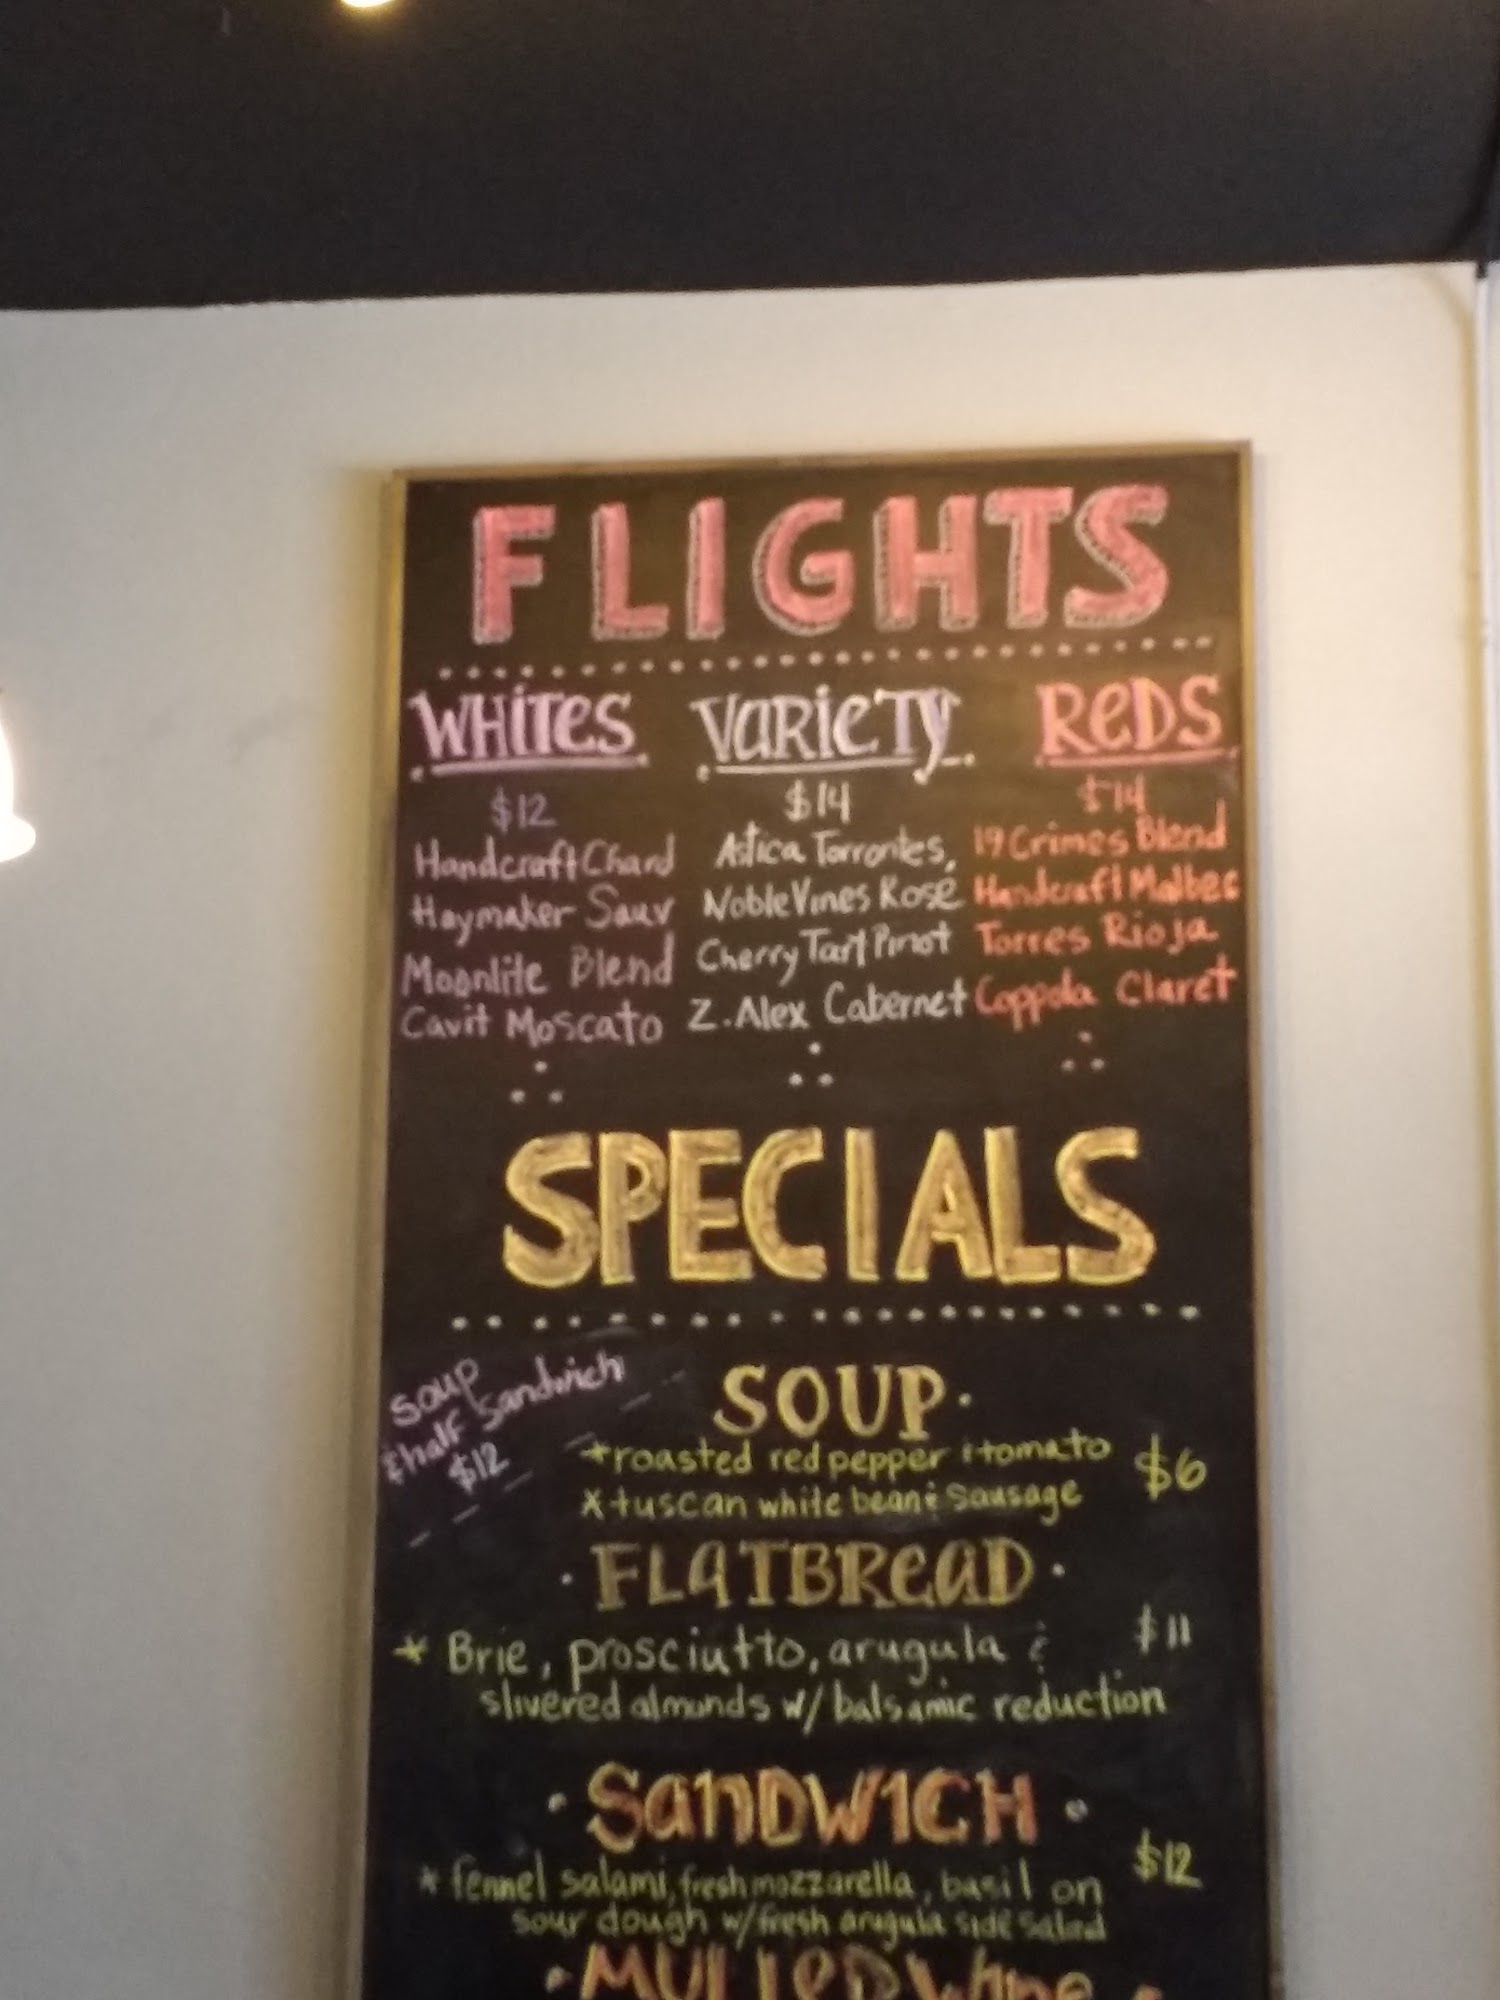 FLIGHTS
WHITES
$12
Handcraft Chard
Haymaker Sauv
Moonlite Blend
Cavit Moscato
VARIETY
$14
Astica Torrontes,
Noble Vines Rosé
Cherry Tart Pinot
Z. Alex Cabernet
REDS
$14
19 Crimes Blend
Handcraft Malbec
Torres Rioja
Coppola Claret
SPECIALS
soup
& half Sandwich
$12
SOUP
*roasted red pepper & tomato $6
*tuscan white bean & Sausage
FLATBREAD
* Brie, prosciutto, arugula & $11
slivered almonds w/ balsamic reduction
SANDWICH
* fennel salami, fresh mozzarella, basil on $12
sour dough w/ fresh arugula side salad
MULLED Wine